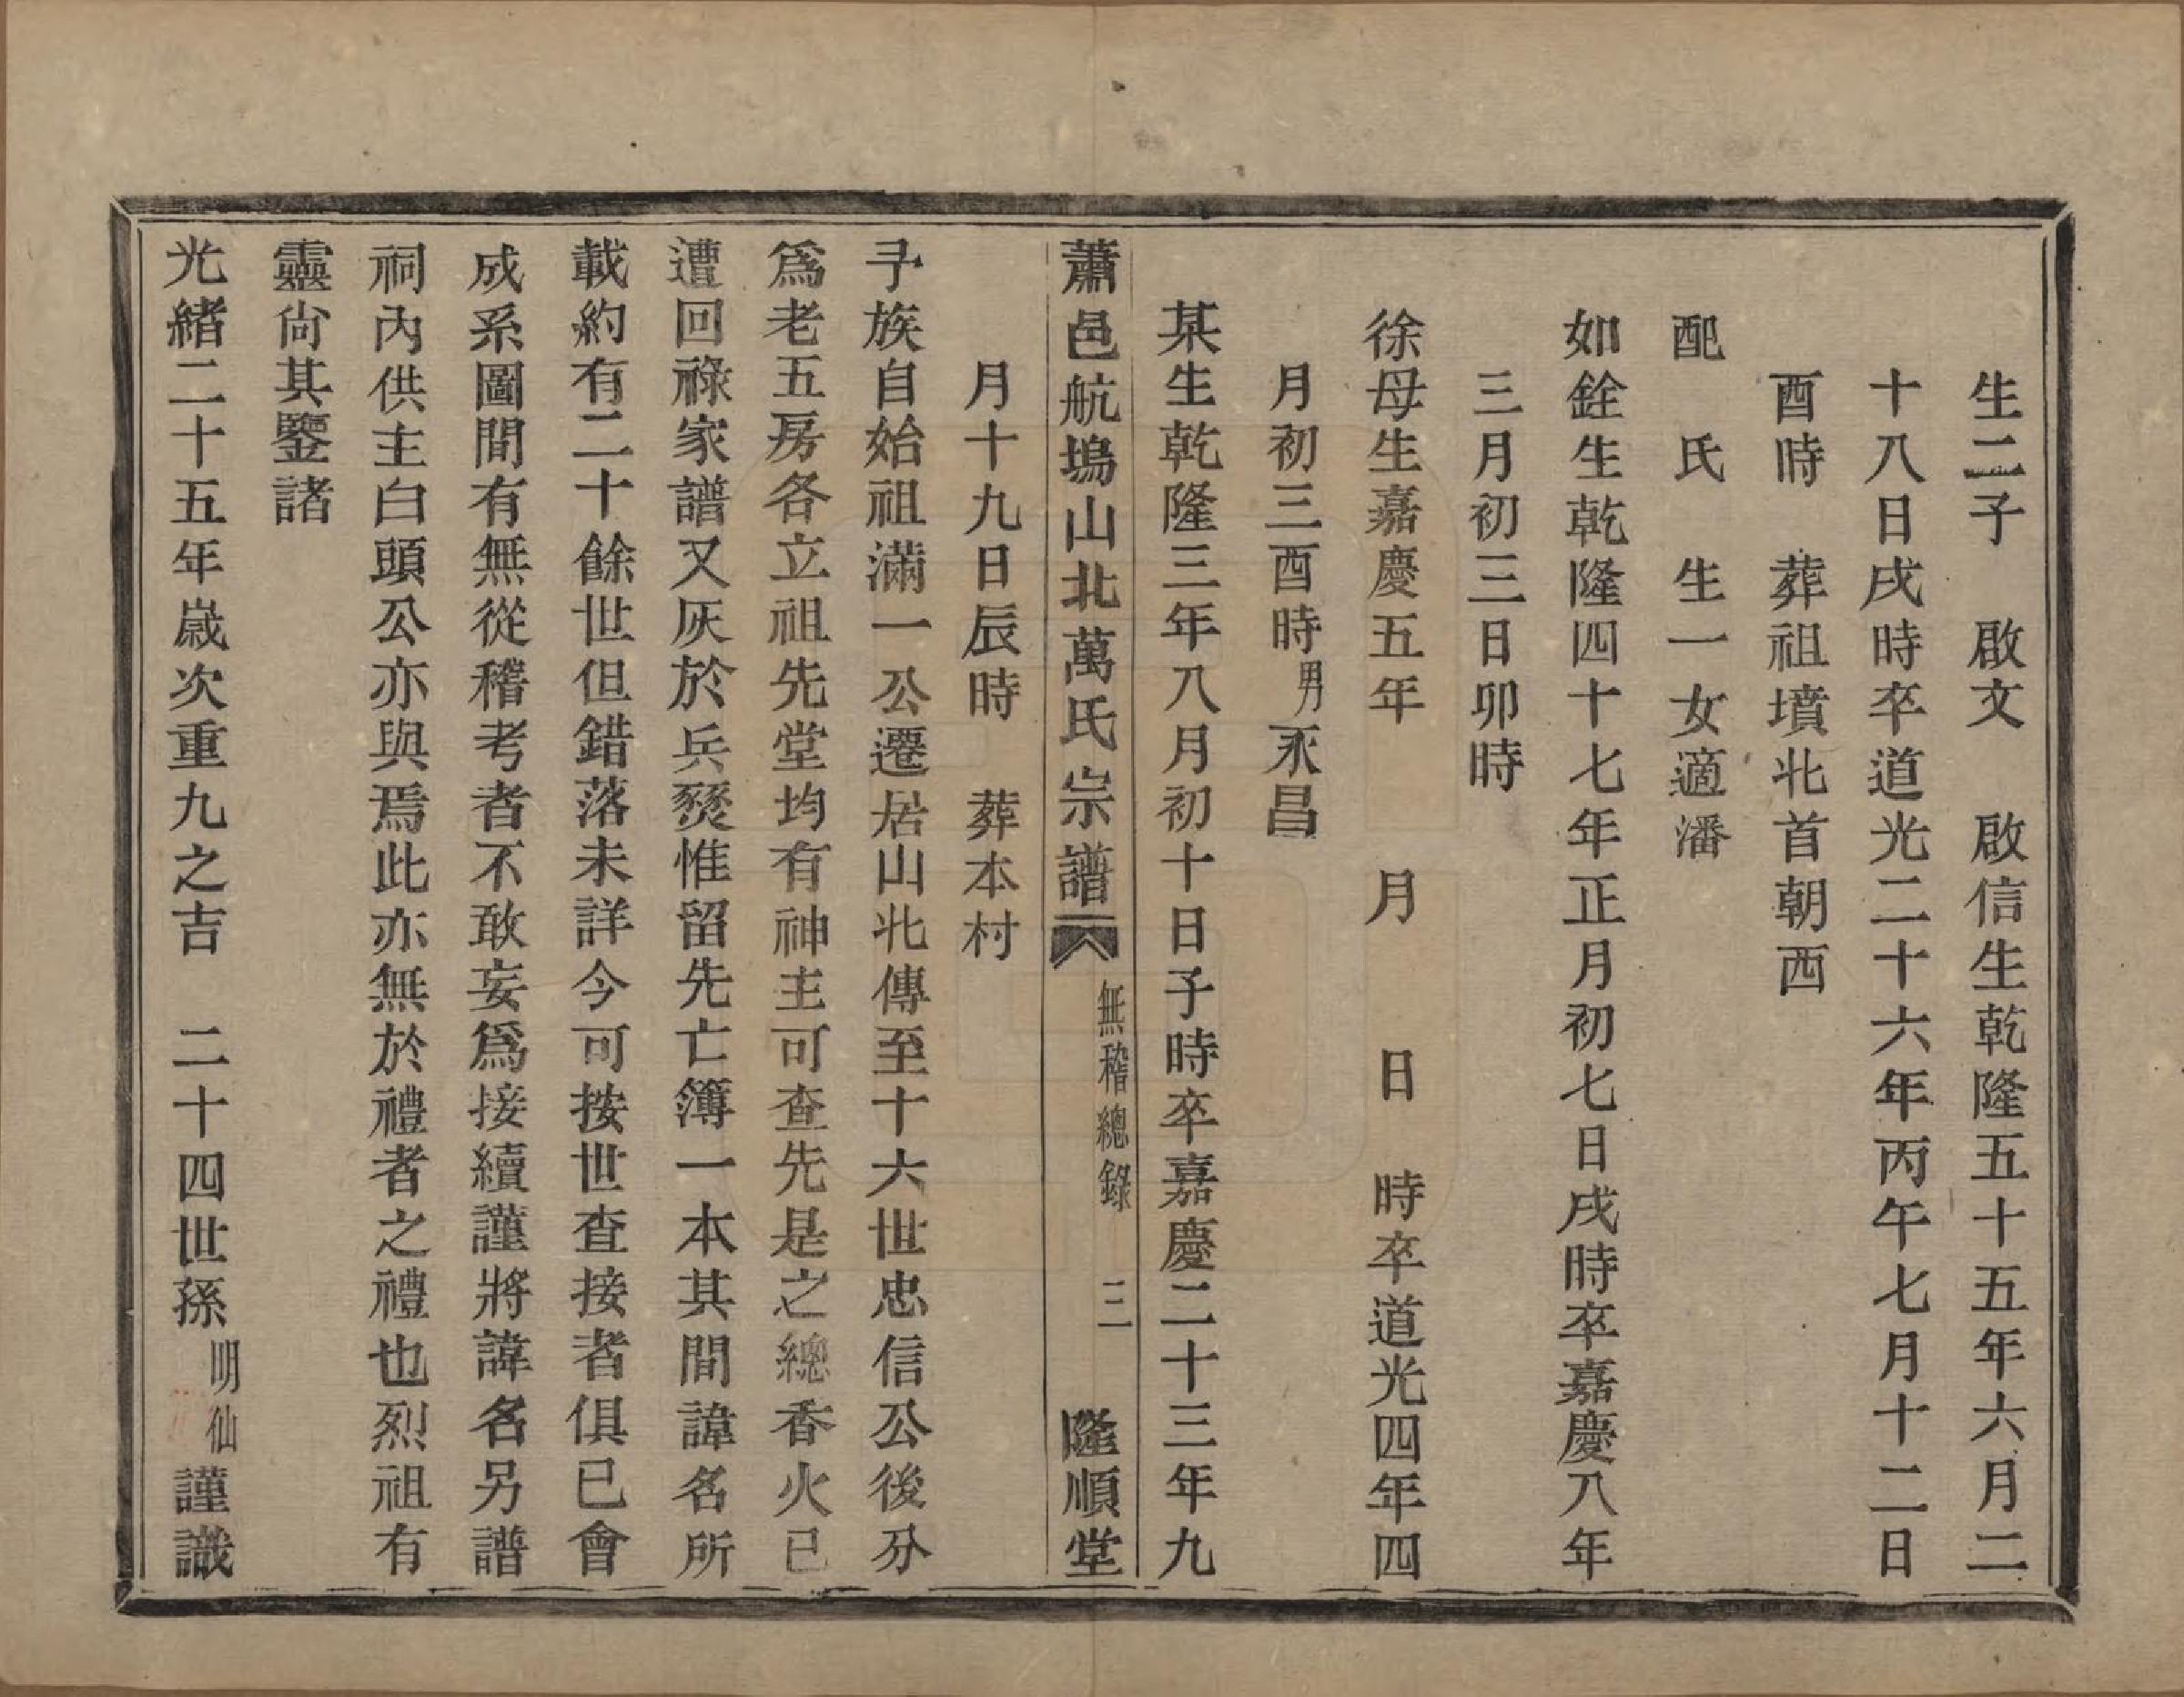 生二子　啟文　啟信生乾隆五十五年六月二
十八日戌時卒道光二十六年丙午七月十二日
酉時　葬祖墳北首朝西
配　氏　生一女適潘
如銓生乾隆四十七年正月初七日戌時卒嘉慶八年
三月初三日卯時
徐母生嘉慶五年　月　日　時卒道光四年四
月初三酉時男永昌
某生乾隆三年八月初十日子時卒嘉慶二十三年九
蕭邑航塢山北萬氏宗譜　無稽總錄　三　隆順堂
月十九日辰時　葬本村
予族自始祖滿一公遷居山北傳至十六世忠信公後分
爲老五房各立祖先堂均有神主可查先是之總香火已
遭回祿家譜又灰於兵燹惟留先亡簿一本其間諱名所
載約有二十餘世但錯落未詳今可按世查接者俱已會
成系圖間有無從稽考者不敢妄爲接續謹將諱名另譜
祠內供主白頭公亦與焉此亦無於禮者之禮也烈祖有
靈尙其鑒諸
光緒二十五年歲次重九之吉　二十四世孫明仙謹識